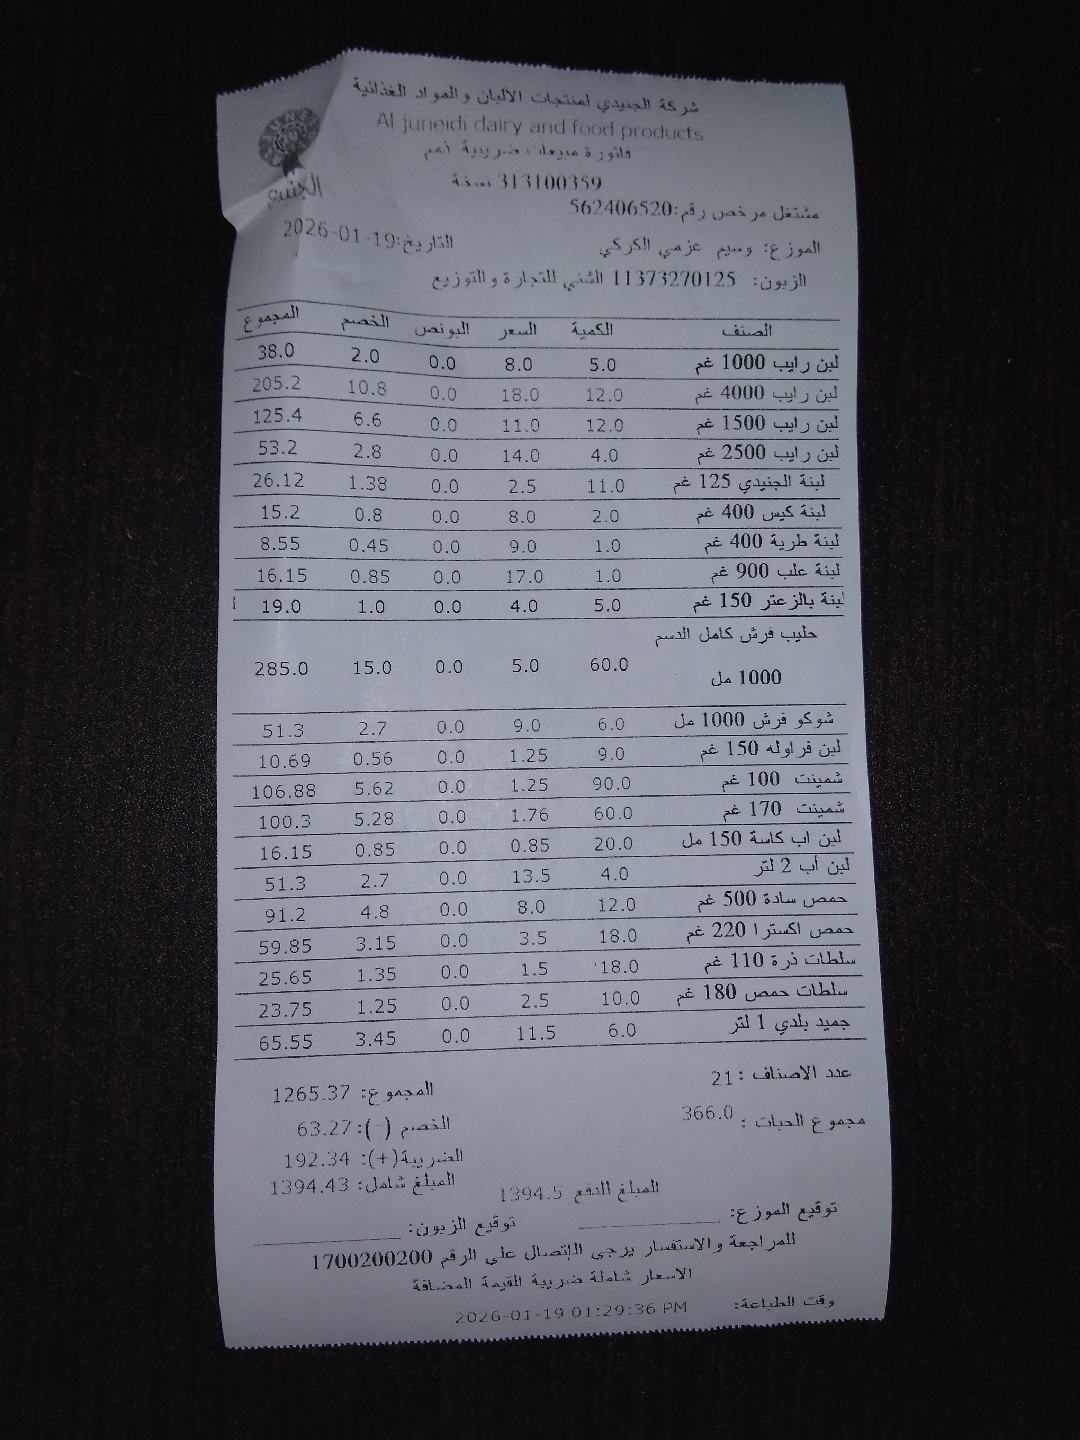 شركة الجنيدي لمنتجات الألبان والمواد الغذائية
Al juneidi dairy and food products
فاتورة مبيعات ضريبية ذمم
313100359 نسخة
مشتغل مرخص رقم:562406520
الموزع: وسيم عزمي الكركي التاريخ:2026-01-19
الزبون: 11373270125 الشني للتجارة والتوزيع
الصنف الكمية السعر البونص الخصم المجموع
لبن رايب 1000 غم 5.0 8.0 0.0 2.0 38.0
لبن رايب 4000 غم 12.0 18.0 0.0 10.8 205.2
لبن رايب 1500 غم 12.0 11.0 0.0 6.6 125.4
لبن رايب 2500 غم 4.0 14.0 0.0 2.8 53.2
لبنة الجنيدي 125 غم 11.0 2.5 0.0 1.38 26.12
لبنة كيس 400 غم 2.0 8.0 0.0 0.8 15.2
لبنة طرية 400 غم 1.0 9.0 0.0 0.45 8.55
لبنة علب 900 غم 1.0 17.0 0.0 0.85 16.15
لبنة بالزعتر 150 غم 5.0 4.0 0.0 1.0 19.0
حليب فرش كامل الدسم
1000 مل 60.0 5.0 0.0 15.0 285.0
شوكو فرش 1000 مل 6.0 9.0 0.0 2.7 51.3
لبن فراوله 150 غم 9.0 1.25 0.0 0.56 10.69
شمينت 100 غم 90.0 1.25 0.0 5.62 106.88
شمينت 170 غم 60.0 1.76 0.0 5.28 100.3
لبن اب كاسة 150 مل 20.0 0.85 0.0 0.85 16.15
لبن أب 2 لتر 4.0 13.5 0.0 2.7 51.3
حمص سادة 500 غم 12.0 8.0 0.0 4.8 91.2
حمص اكسترا 220 غم 18.0 3.5 0.0 3.15 59.85
سلطات ذرة 110 غم 18.0 1.5 0.0 1.35 25.65
سلطات حمص 180 غم 10.0 2.5 0.0 1.25 23.75
جميد بلدي 1 لتر 6.0 11.5 0.0 3.45 65.55
عدد الاصناف : 21 المجموع: 1265.37
مجموع الحبات : 366.0 الخصم (-): 63.27
الضريبة(+): 192.34
المبلغ شامل: 1394.43
المبلغ الدفع 1394.5
توقيع الموزع: ____________ توقيع الزبون: ____________
للمراجعة والاستفسار يرجى الاتصال على الرقم 1700200200
الاسعار شاملة ضريبة القيمة المضافة
وقت الطباعة: 2026-01-19 01:29:36 PM